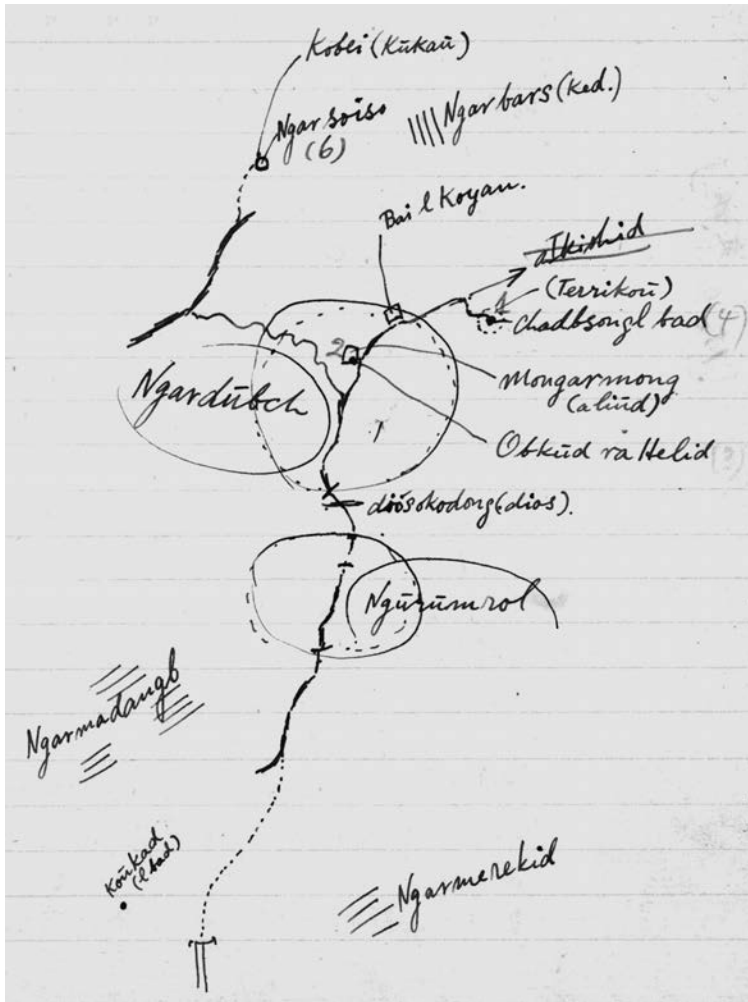 Kobei (Kūkaū)
Ngarsoiso
(6)
Ngarbars (ked.)
Bai l Koyau.
atkishid
1
(Terrikoū)
Chadbsongl bad (4)
2
Mongarmong
(aliūd)
Ngardūbch
1
Obkūd ra Helid
(3)
dōōsokodong (dios).
Ngūrūmrol
Ngarmadangb
Koūkad
(l bad)
Ngarmerekid